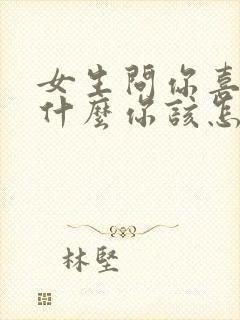 女生問你喜
什麼你該怎
林堅